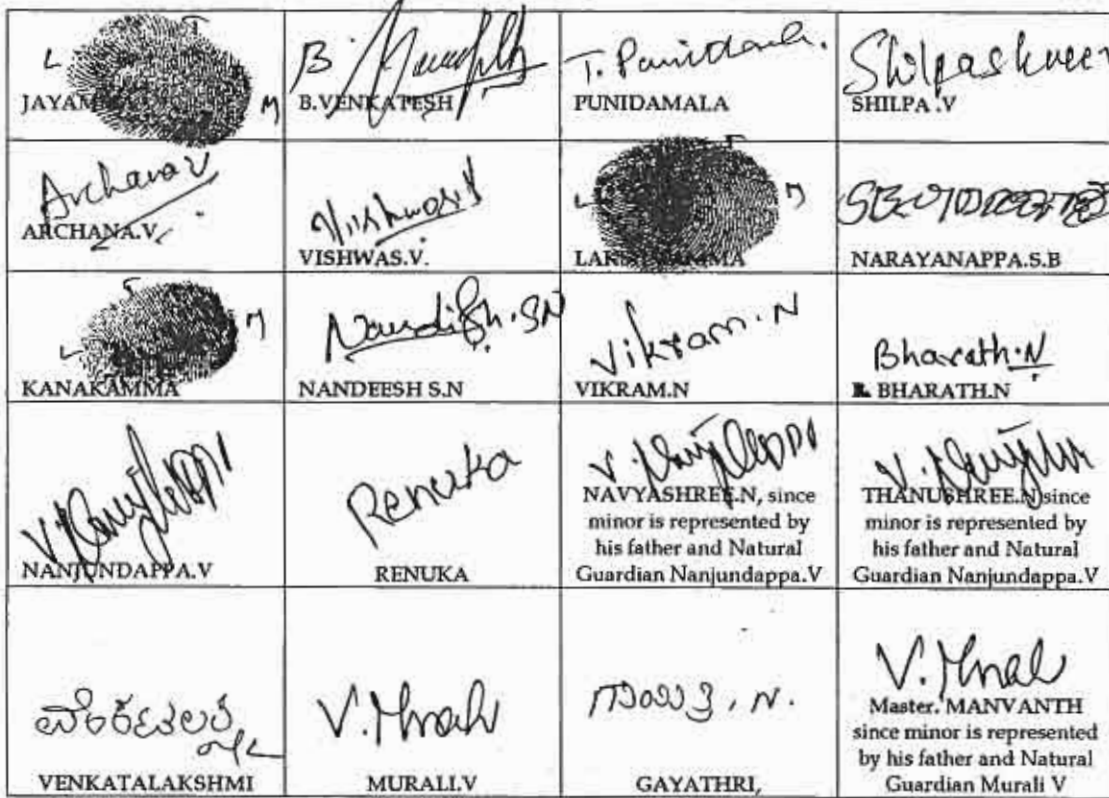 L T M
JAYAMMA
B
B.VENKATESH
T. Punidamala.
PUNIDAMALA
Shilpashree
SHILPA .V
Archana V
ARCHANA.V.
Vishwas V
VISHWAS.V.
L T M
LAKSHMAMMA
NARAYANAPPA.S.B
L T M
KANAKAMMA
Nandish.SN
NANDEESH S.N
Vikram.N
VIKRAM.N
Bharath.N
BHARATH.N
V. Nanjundappa
NANJUNDAPPA.V
Renuka
RENUKA
V. Nanjundappa
NAVYASHREE.N, since
minor is represented by
his father and Natural
Guardian Nanjundappa.V
V.
THANUSHREE.N since
minor is represented by
his father and Natural
Guardian Nanjundappa.V
VENKATALAKSHMI
V. Murali
MURALI.V
ಗಾಯತ್ರಿ, N.
GAYATHRI,
V. Murali
Master. MANVANTH
since minor is represented
by his father and Natural
Guardian Murali V